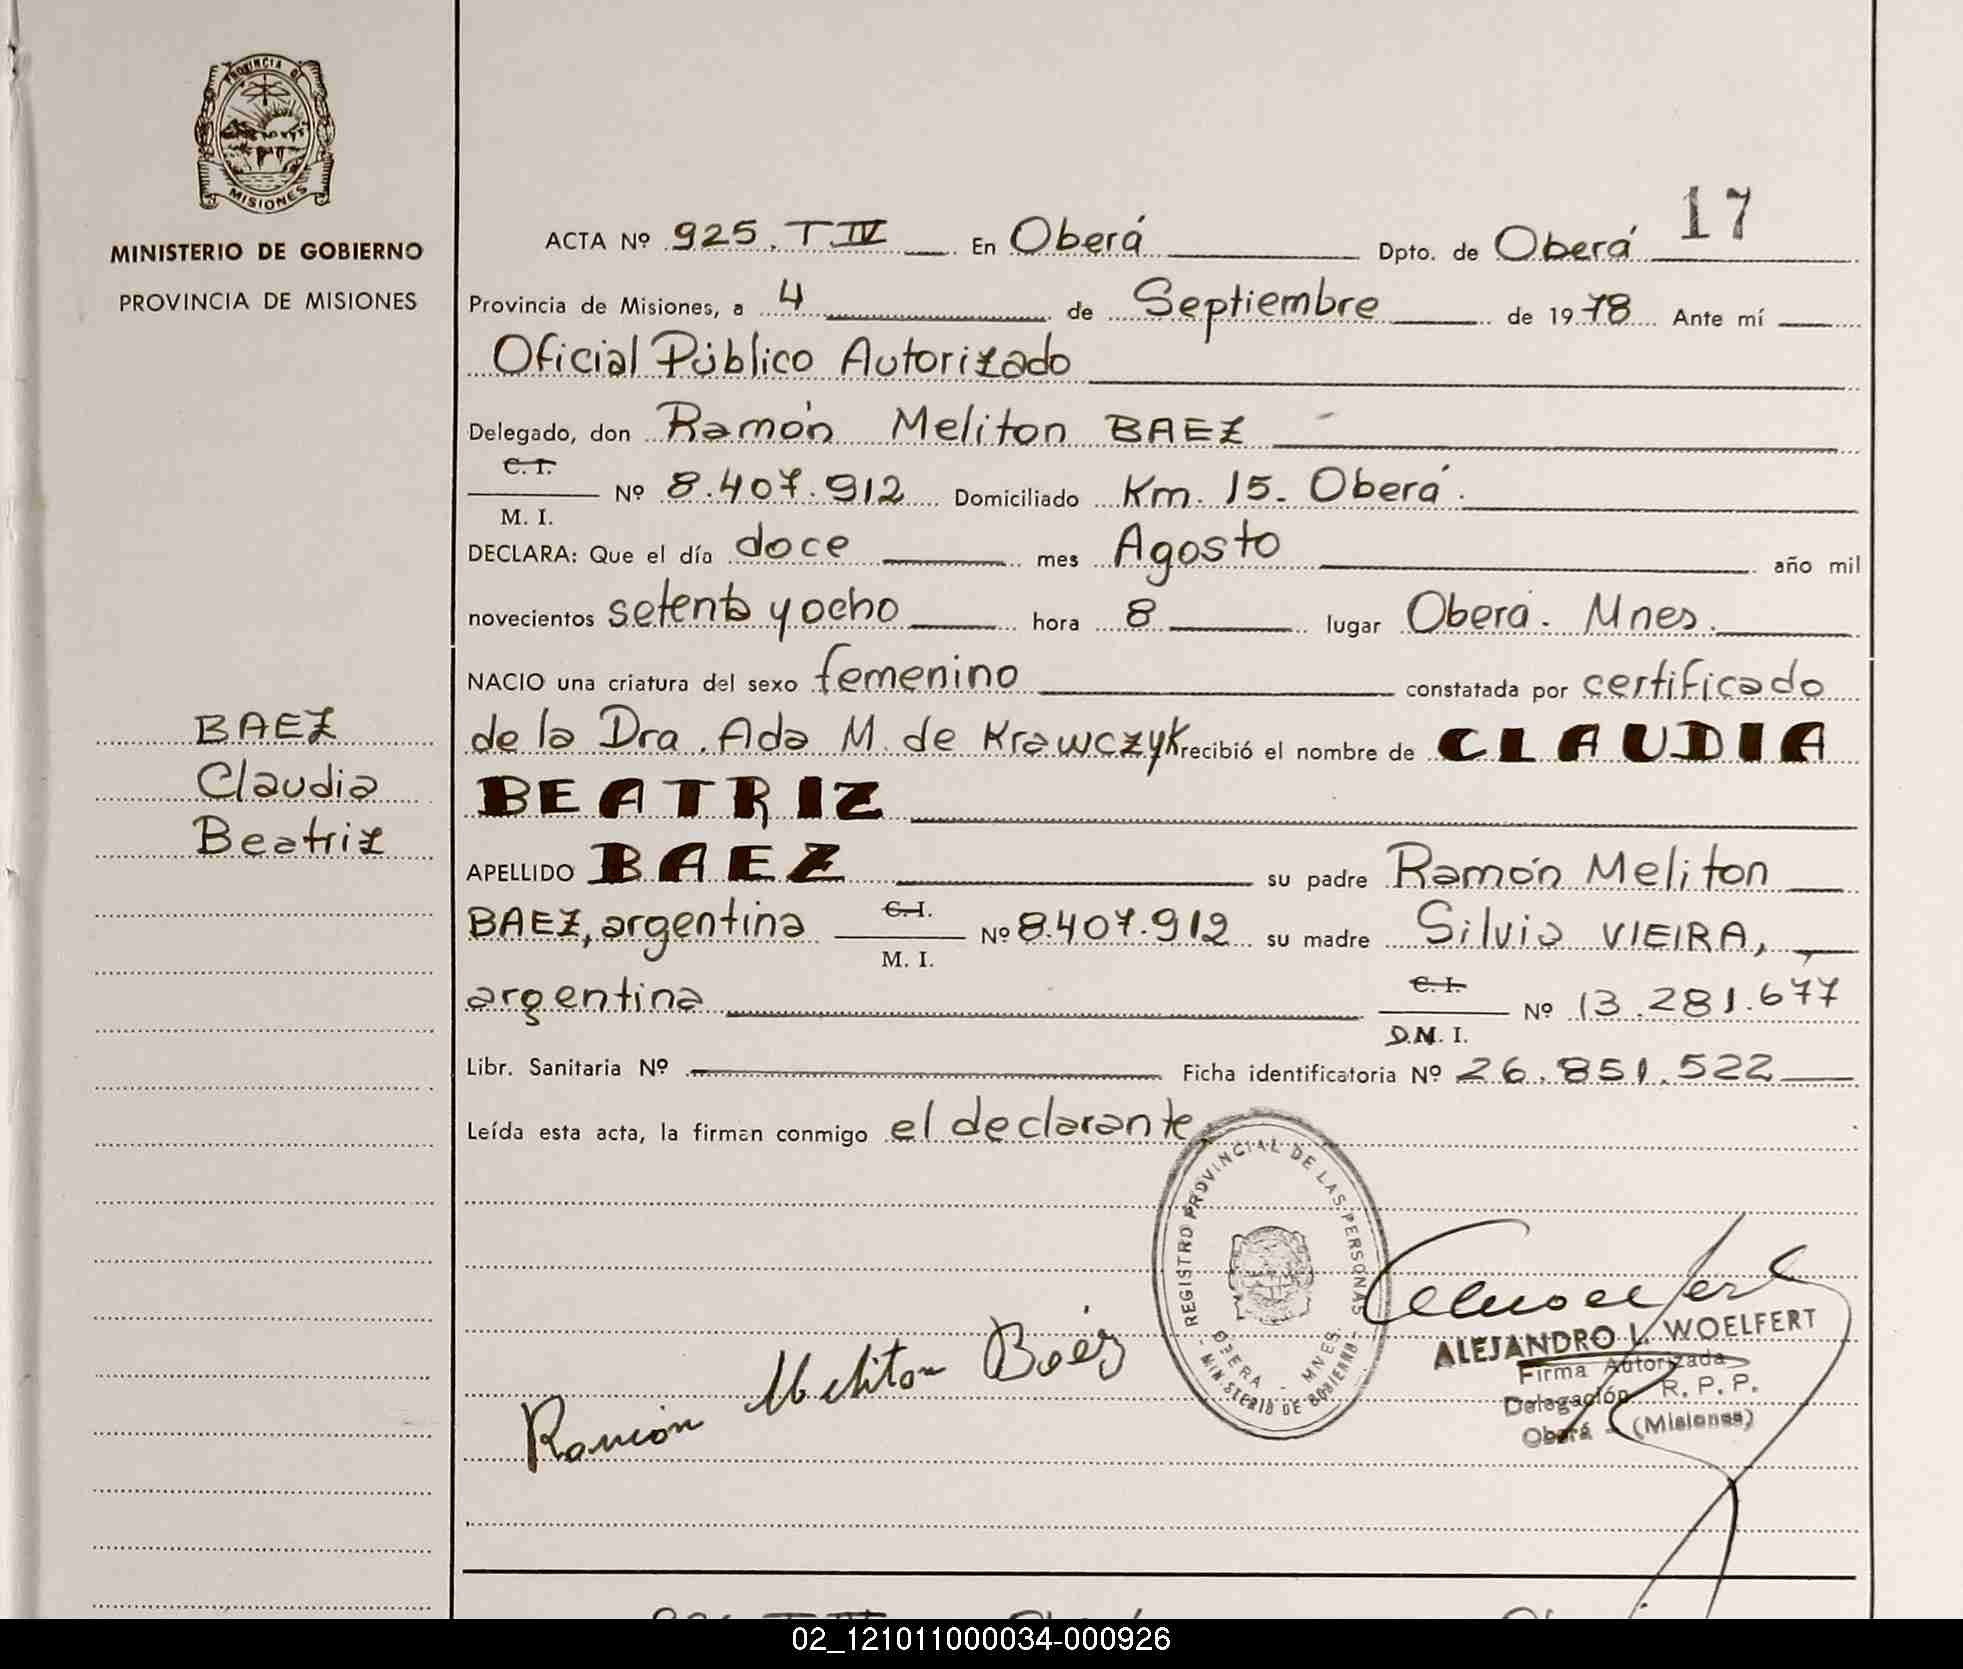 PROVINCIA DE
MISIONES
MINISTERIO DE GOBIERNO
PROVINCIA DE MISIONES
17
ACTA Nº 925. T IV En Oberá Dpto. de Oberá
Provincia de Misiones, a 4 de Septiembre de 1978 Ante mí
Oficial Público Autorizado
Delegado, don Ramón Meliton BAEZ
C. I.
Nº 8.407.912 Domiciliado Km. 15. Oberá.
M. I.
DECLARA: Que el día doce mes Agosto año mil
novecientos setenta y ocho hora 8 lugar Oberá. Mnes.
NACIO una criatura del sexo femenino constatada por certificado
de la Dra. Ada M. de Krawczyk recibió el nombre de CLAUDIA
BEATRIZ
BAEZ
Claudia
Beatriz
APELLIDO BAEZ su padre Ramón Meliton
BAEZ, argentina C. I. Nº 8.407.912 su madre Silvia VIEIRA,
M. I.
argentina C. I. Nº 13.281.677
D.M. I.
Libr. Sanitaria Nº Ficha identificatoria Nº 26.851.522
Leída esta acta, la firman conmigo el declarante
REGISTRO PROVINCIAL DE LAS PERSONAS
OBERA - MNES.
- MINISTERIO DE GOBIERNO -
Ramón Meliton Baéz
ALEJANDRO L. WOELFERT
Firma Autorizada
Delegación R. P. P.
Oberá - (Misiones)
02_121011000034-000926